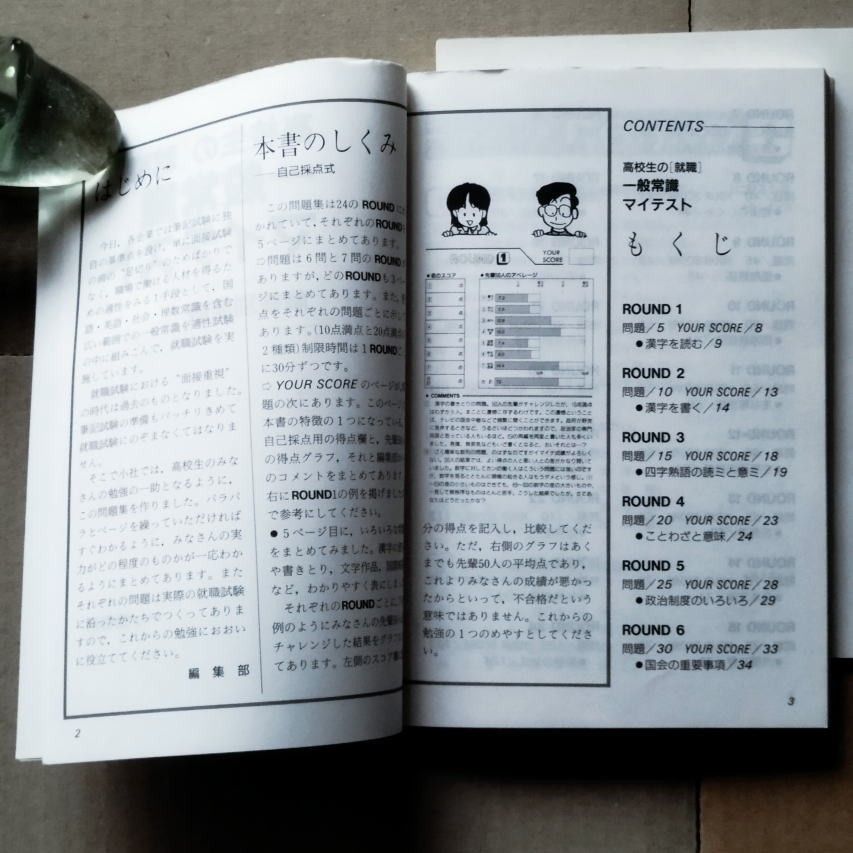 はじめに
今日、各企業では筆記試験に独
自の基準点を設け、単に面接試験
の前の“足切り”のためばかりで
なく、職場で働ける人材を得るた
めの適性をみる1手段として、国
語・英語・社会・理数常識を含む
広い範囲での一般常識を適性試験
の中に組みこんで、就職試験を実
施しています。
就職試験における“面接重視”
の時代は過去のものとなりました。
筆記試験の準備もバッチリきめて
就職試験にのぞまなくてはなりま
せん。
そこで小社では、高校生のみな
さんの勉強の一助となるように、
この問題集を作りました。パラパ
ラとページを繰っていただければ
すぐわかるように、みなさんの実
力がどの程度のものかが一応わか
るようにまとめてあります。また
それぞれの問題は実際の就職試験
に沿ったかたちでつくってありま
すので、これからの勉強におおい
に役立ててください。
編集部
2
本書のしくみ
——自己採点式
この問題集は24のROUNDに
かれていて、それぞれのROUND
5ページにまとめてあります。
問題は6問と7問のROUND
ありますが、どのROUNDも3ペー
ジにまとめてあります。また、
点をそれぞれの問題ごとに示して
あります。(10点満点と20点満点
2種類)制限時間は1ROUND
に30分ずつです。
⇨ YOUR SCOREのページが、
題の次にあります。このページ
本書の特徴の1つになってい
自己採点用の得点欄と、先輩
の得点グラフ、それと編集部
のコメントをまとめてあります
右にROUND1の例を掲げました
で参考にしてください。
● 5ページ目に、いろいろな
をまとめてみました。漢字の
や書きとり、文字作品、国際
など、わかりやすく表にしま
それぞれのROUNDごとに、
例のようにみなさんの先輩
チャレンジした結果をグラフ
てあります。左側のスコア欄
1 YOUR SCORE
●君のスコア
●先輩50人のアベレージ
● COMMENTS
分の得点を記入し、比較してくだ
さい。ただ、右側のグラフはあく
までも先輩50人の平均点であり、
これよりみなさんの成績が悪かっ
たからといって、不合格だという
意味ではありません。これからの
勉強の1つのめやすとしてくださ
い。
CONTENTS
高校生の[就職]
一般常識
マイテスト
もくじ
ROUND 1
問題/5 YOUR SCORE/8
●漢字を読む/9
ROUND 2
問題/10 YOUR SCORE/13
●漢字を書く/14
ROUND 3
問題/15 YOUR SCORE/18
●四字熟語の読ミと意ミ/19
ROUND 4
問題/20 YOUR SCORE/23
●ことわざと意味/24
ROUND 5
問題/25 YOUR SCORE/28
●政治制度のいろいろ/29
ROUND 6
問題/30 YOUR SCORE/33
●国会の重要事項/34
3